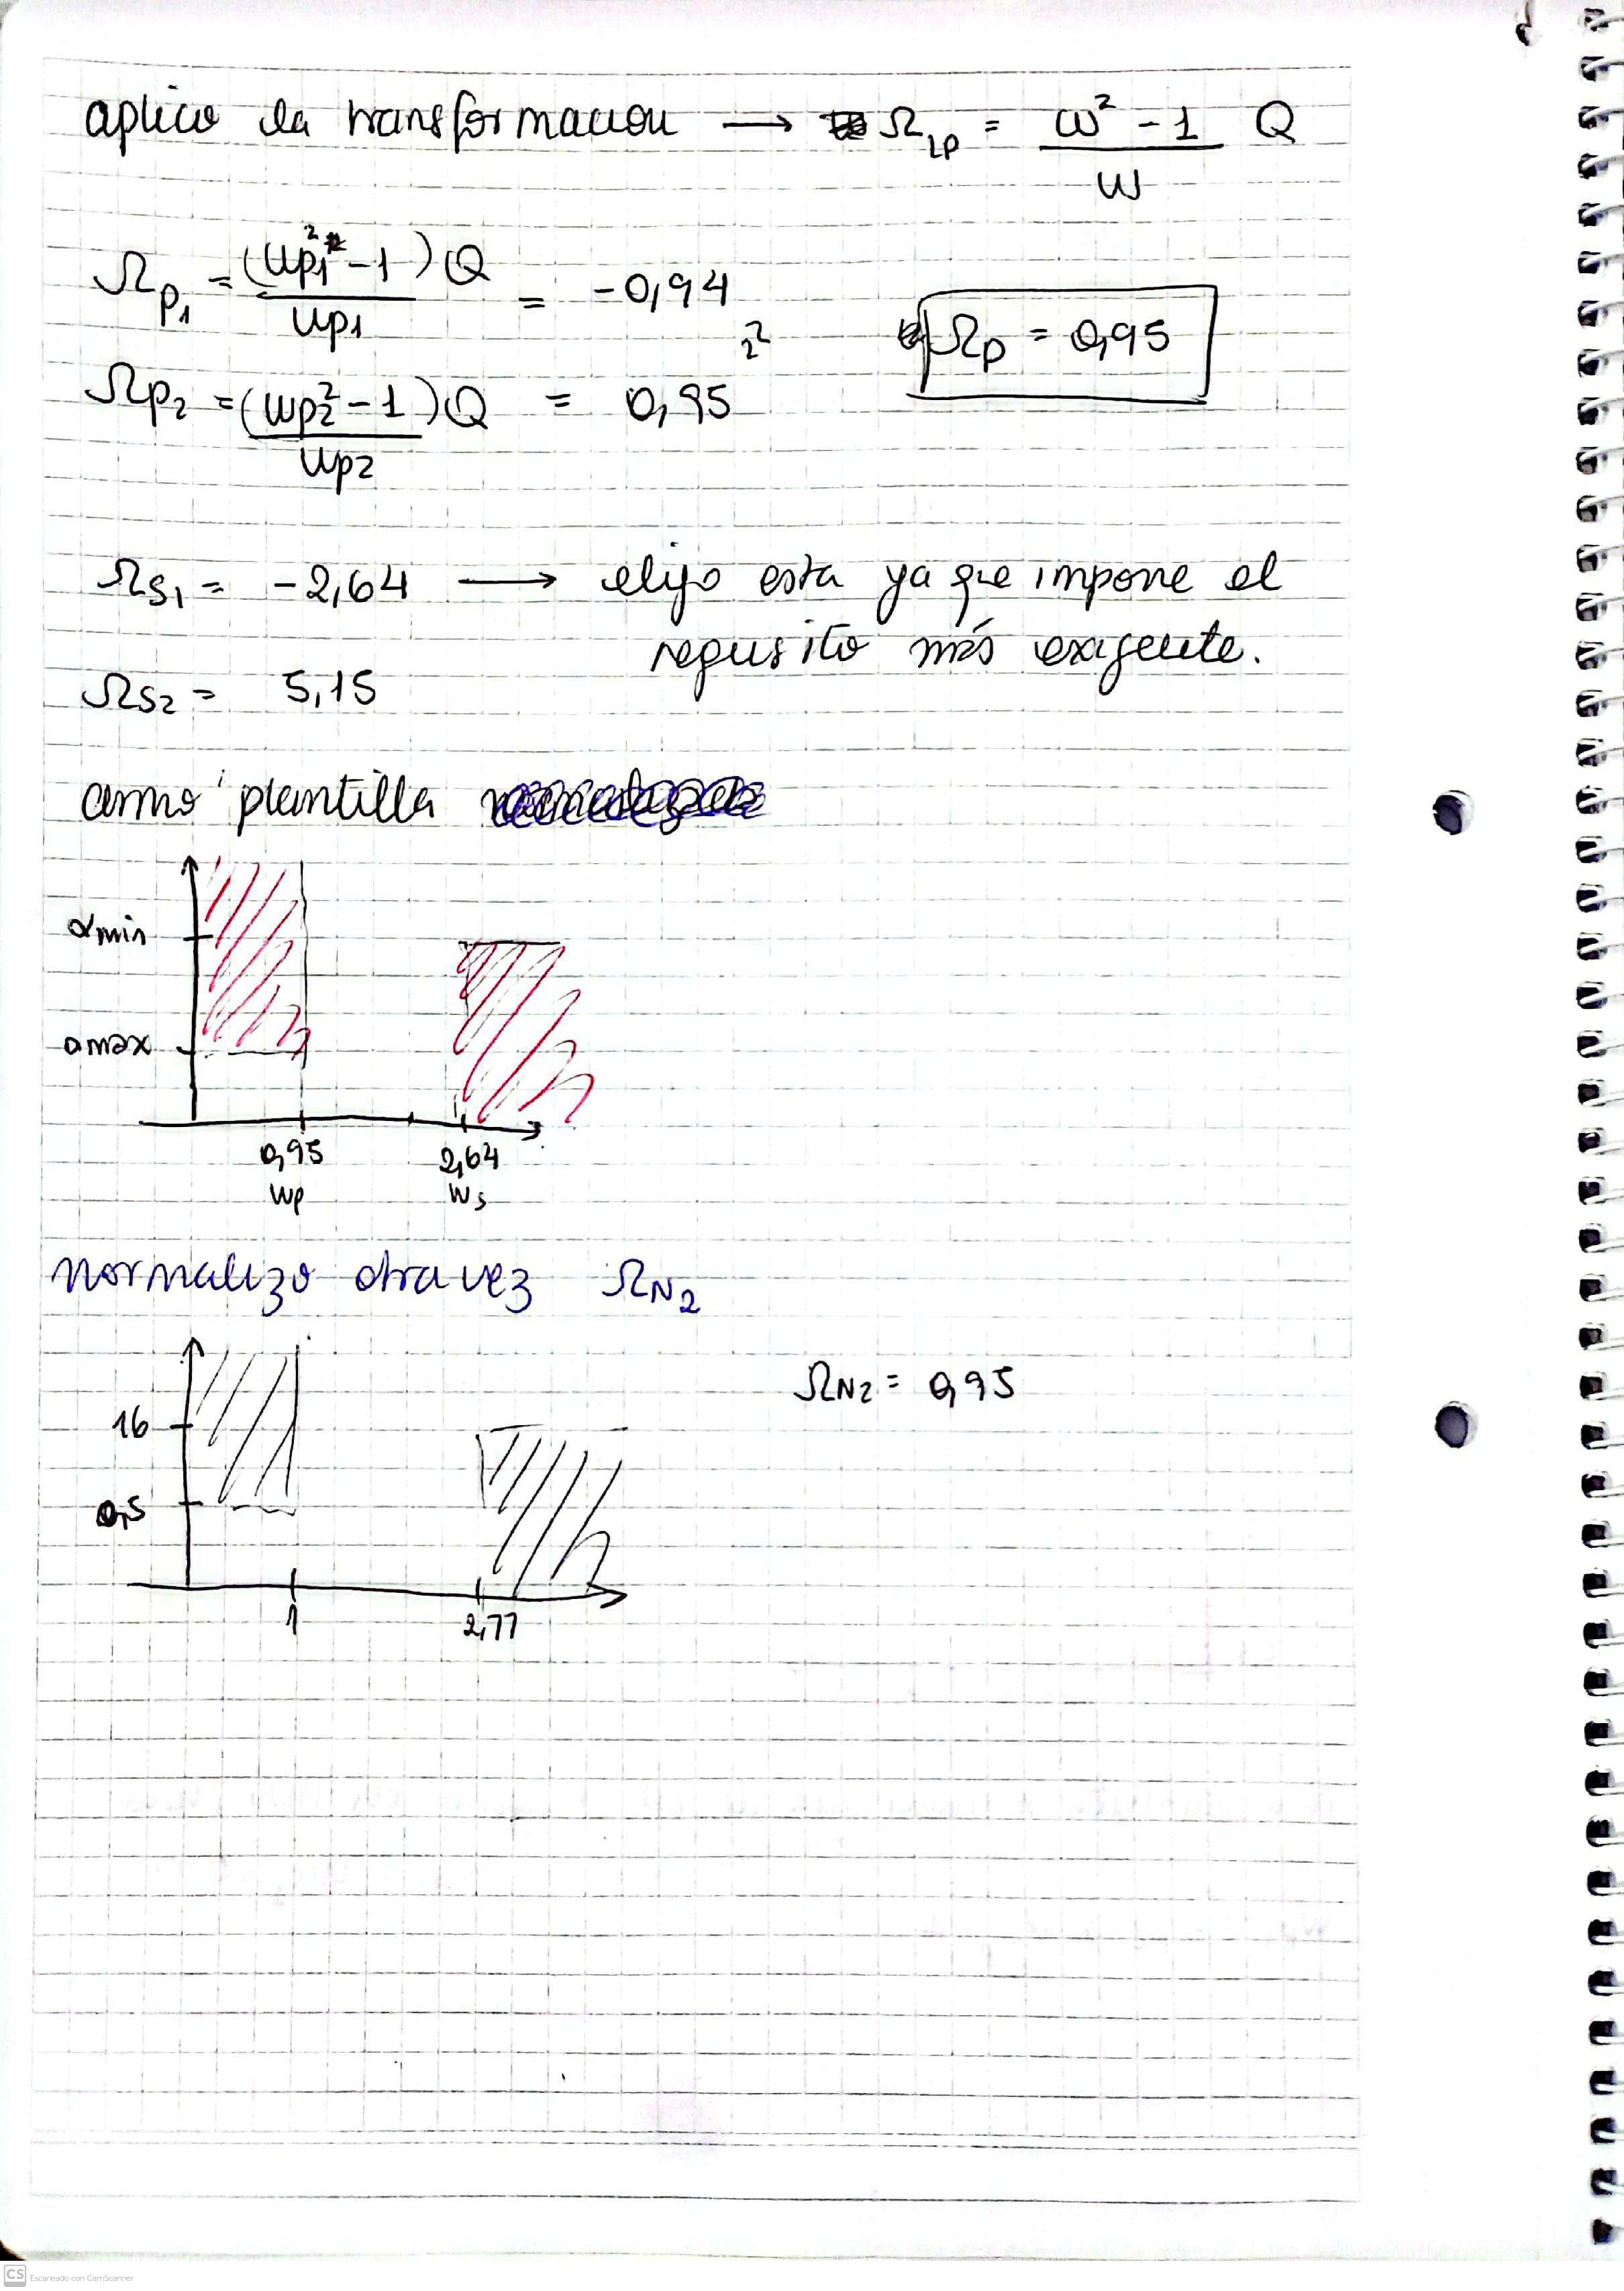 aplico la transformacion → Ω_LP = (ω² - 1)/ω Q
Ω_p1 = (ωp1² - 1)Q/ωp1 = -0,94
Ω_p = 0,95
Ωp2 = (ωp2² - 1)Q/ωp2 = 0,95
Ωs1 = -2,64 → elijo esta ya que impone el
requisito más exigente.
Ωs2 = 5,15
armo plantilla
αmin
αmax
0,95 2,64
ωp ωs
normalizo otra vez Ω_N2
Ω_N2 = 0,95
16
0,5
1 2,77
CS Escaneado con CamScanner